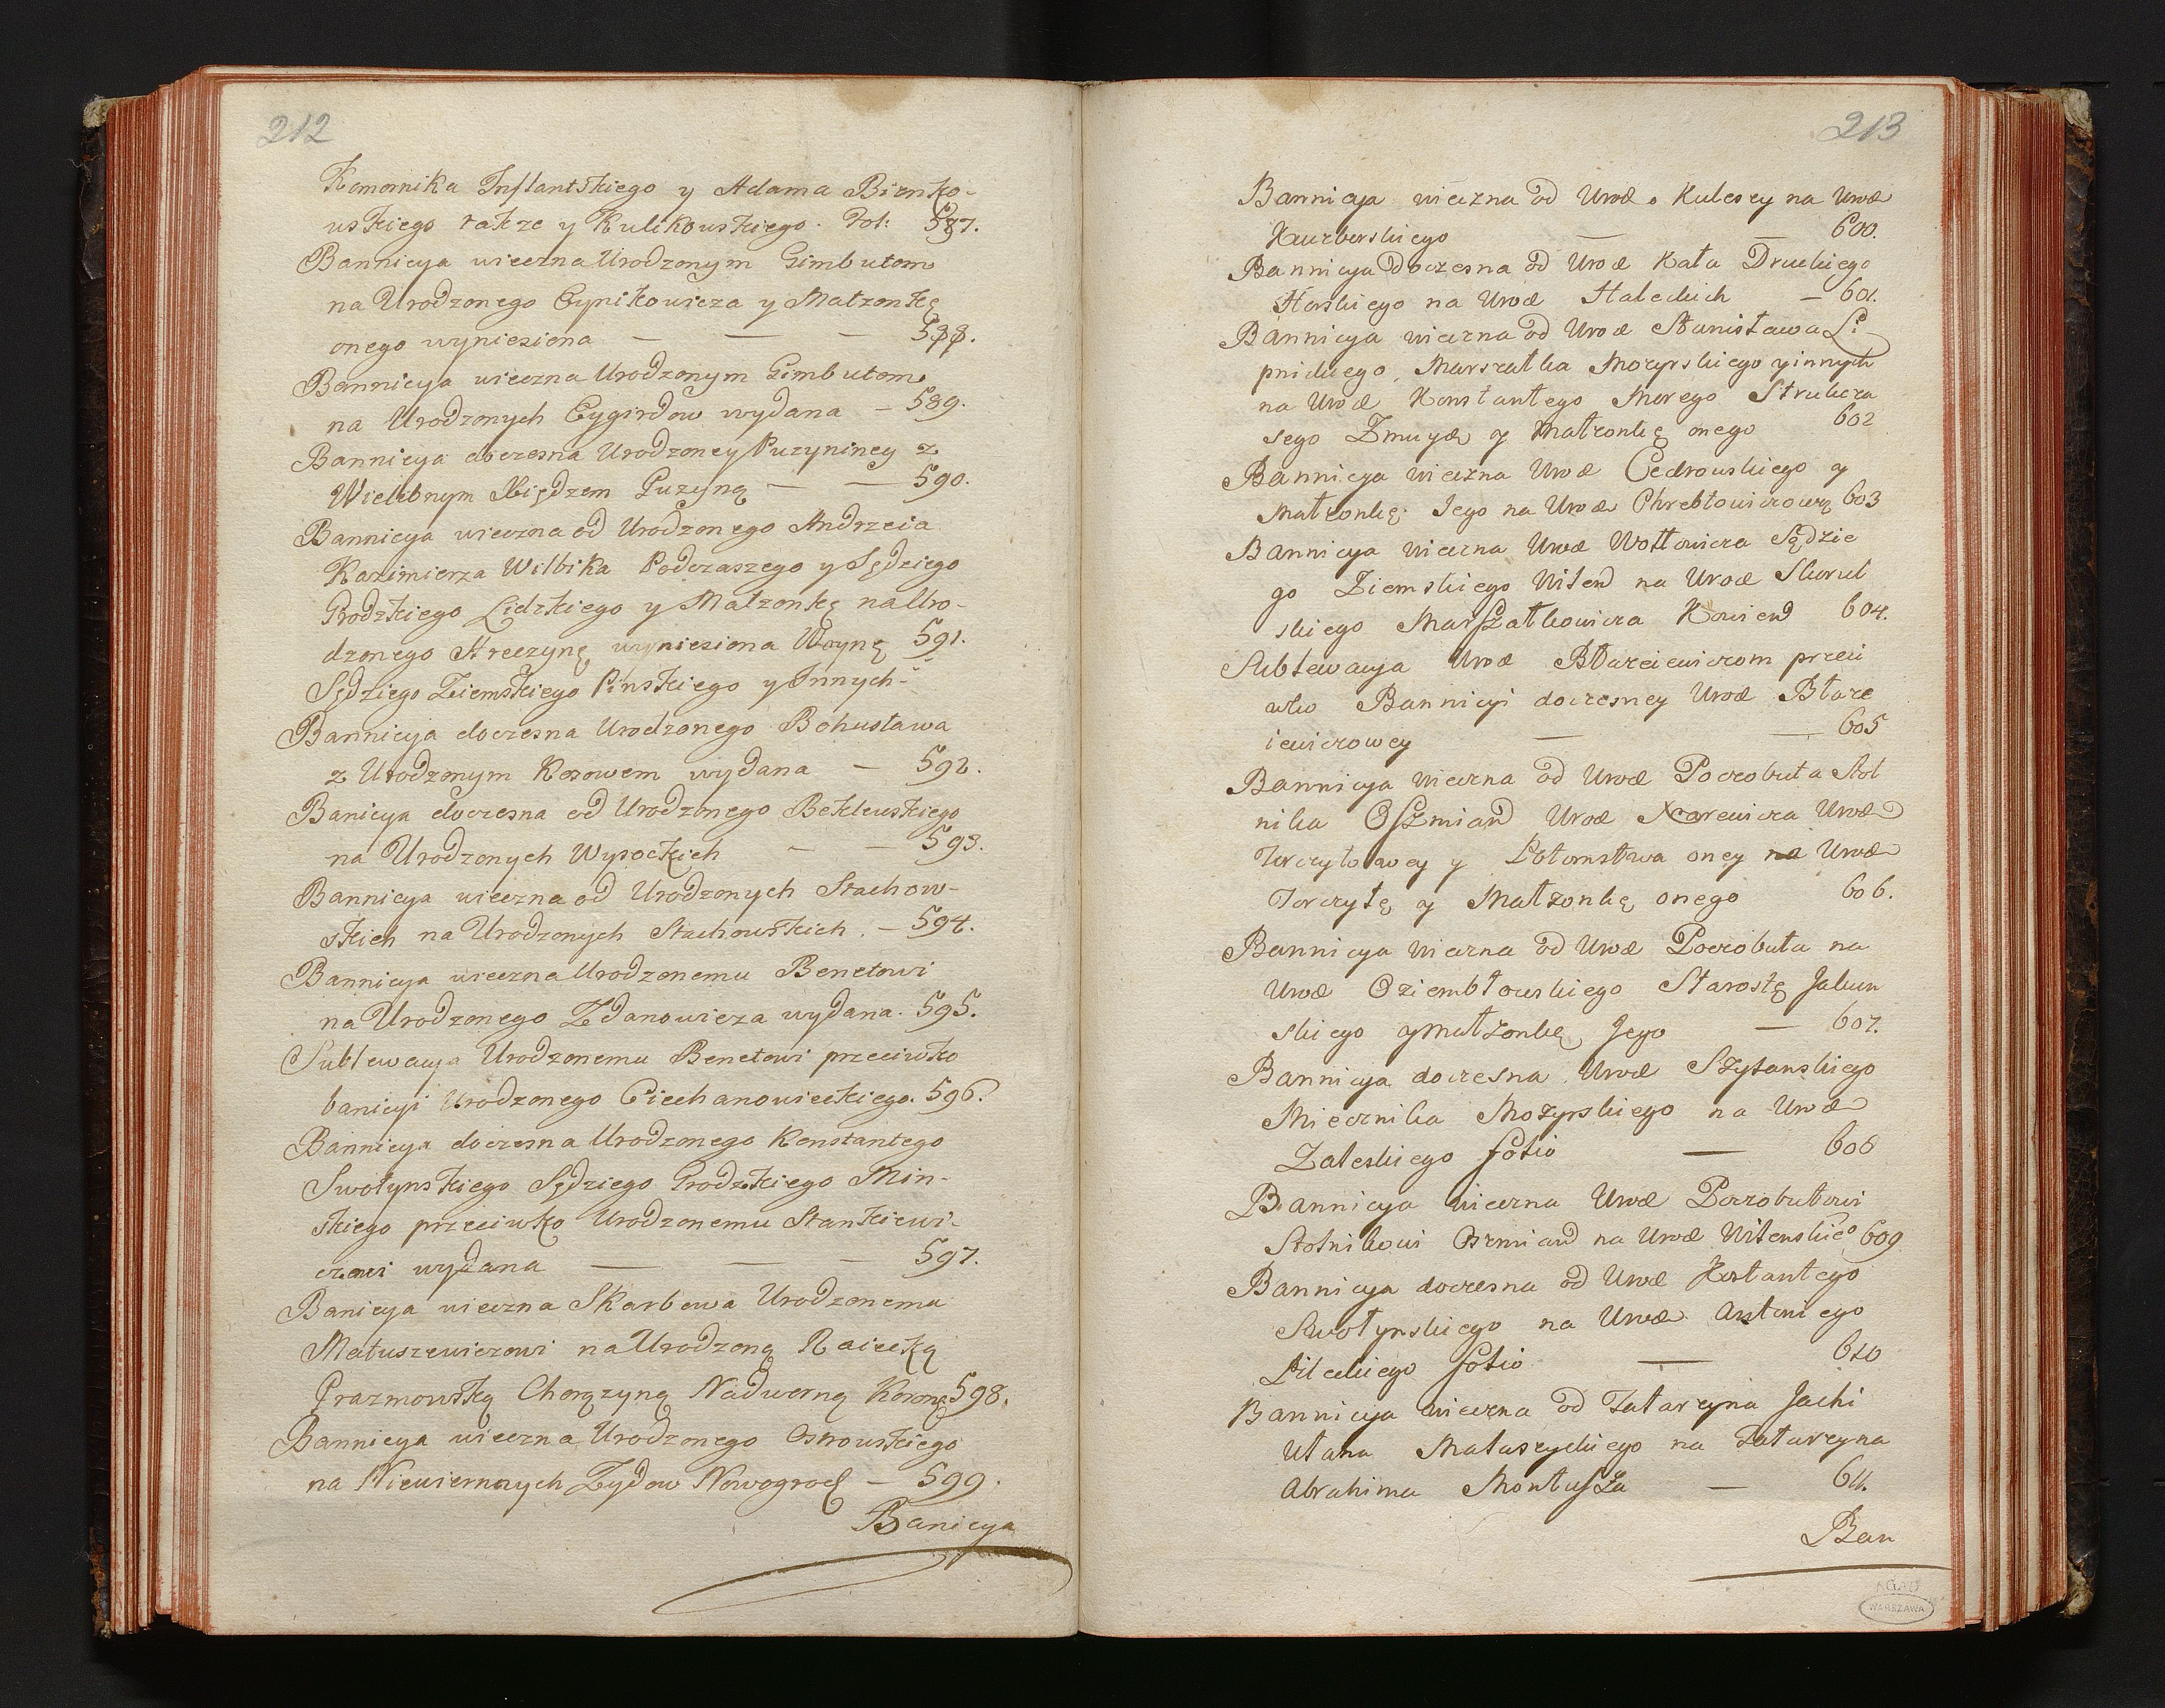 212
Komornika Inflantskiego y Adama Bienko-
wskiego także y Kulikowskiego. Fol: 587.
Bannicya wieczna Urodzonym Gimbutom
na Urodzonego Cynikowicza y Małżonkę
onego wyniesiona — — — 588.
Bannicya wieczna Urodzonym Gimbutom
na Urodzonych Cygirdow wydana — 589.
Bannicya doczesna Urodzoney Puzyniney z
Wielebnym Xiędzem Puzyną — — 590.
Bannicya wieczna od Urodzonego Andrzeia
Kazimierza Wilbika Podczaszego y Sędziego
Grodzkiego Lidzkiego y Małżonkę na Uro-
dzonego Hreczynę wyniesiona Woynę 591.
Sędziego Ziemskiego Pinskiego y Innych
Bannicya doczesna Urodzonego Bohusława
z Urodzonym Kosowem wydana — 592.
Banicya doczesna od Urodzonego Beklewskiego
na Urodzonych Wysockich — — 593.
Bannicya wieczna od Urodzonych Stachow-
skich na Urodzonych Stachowskich. — 594.
Bannicya wieczna Urodzonemu Benetowi
na Urodzonego Zdanowicza wydana. 595.
Sublewacya Urodzonemu Benetowi przeciwko
banicyi Urodzonego Ciechanowieckiego. 596.
Bannicya doczesna Urodzonego Konstantego
Swołynskiego Sędziego Grodzkiego Min-
skiego przeciwko Urodzonemu Stankiewi-
czowi wydana — — — 597.
Banicya wieczna Skarbowa Urodzonemu
Matuszewiczowi na Urodzoną Raiecką
Prazmowską Chorązyną Nadworną Koronę 598.
Bannicya wieczna Urodzonego Osrowskiego
na Niewiernych Zydow Nowogrod — 599.
Banicya
213
Bannicya wieczna od Urod. Kuleszy na Urod
Kurberskiego — — 600.
Bannicya doczesna od Urod Kała Druckiego
Horskiego na Urod Haleckich — 601.
Bannicya wieczna od Urod Stanisława Li
pnickiego Marszałka Mozyrskiego y innych
na Urod Konstantego Morego Strukcza
sego Zmuyd y Małzonkę onego 602
Bannicya wieczna Urod Cedrowskiego y
Małzonkę Jego na Urod Chrebtowiczową 603
Bannicya wieczna Urod Wołłowicza Sędzie
go Ziemskiego Witend na Urod Skorul
skiego Marszałkowicza Kowiend 604.
Sublewacya Urod Błazeiewiczom przeci
wko Bannicyi doczesney Urod Błaze
iewiczowey — — 605
Bannicya wieczna od Urod Poczobuta Stol
nika Oszmiand Urod Narewicza Urod
Torczyłowey y Potomstwa oney na Urod
Torczyłę y Małzonkę onego 606.
Bannicya wieczna od Urod Poczobuta na
Urod Dziembłowskiego Starostę Jakun
skiego y Małzonkę Jego — 607.
Bannicya doczesna Urod Szytanskiego
Miecznika Mozyrskiego na Urod
Zaleskiego folio — 608
Bannicya wieczna Urod Poczobutowi
Stolnikowi Oszmiand na Urod Witenskieo 609
Bannicya doczesna od Urod Kostantego
Swołynskiego na Urod Antoniego
Pileckiego folio — 610
Bannicya wieczna od Tatarzyna Jachi
Utana Matuszyckiego na Tatarzyna
Abrahima Montusza — 611.
Ban
AGAD
WARSZAWA